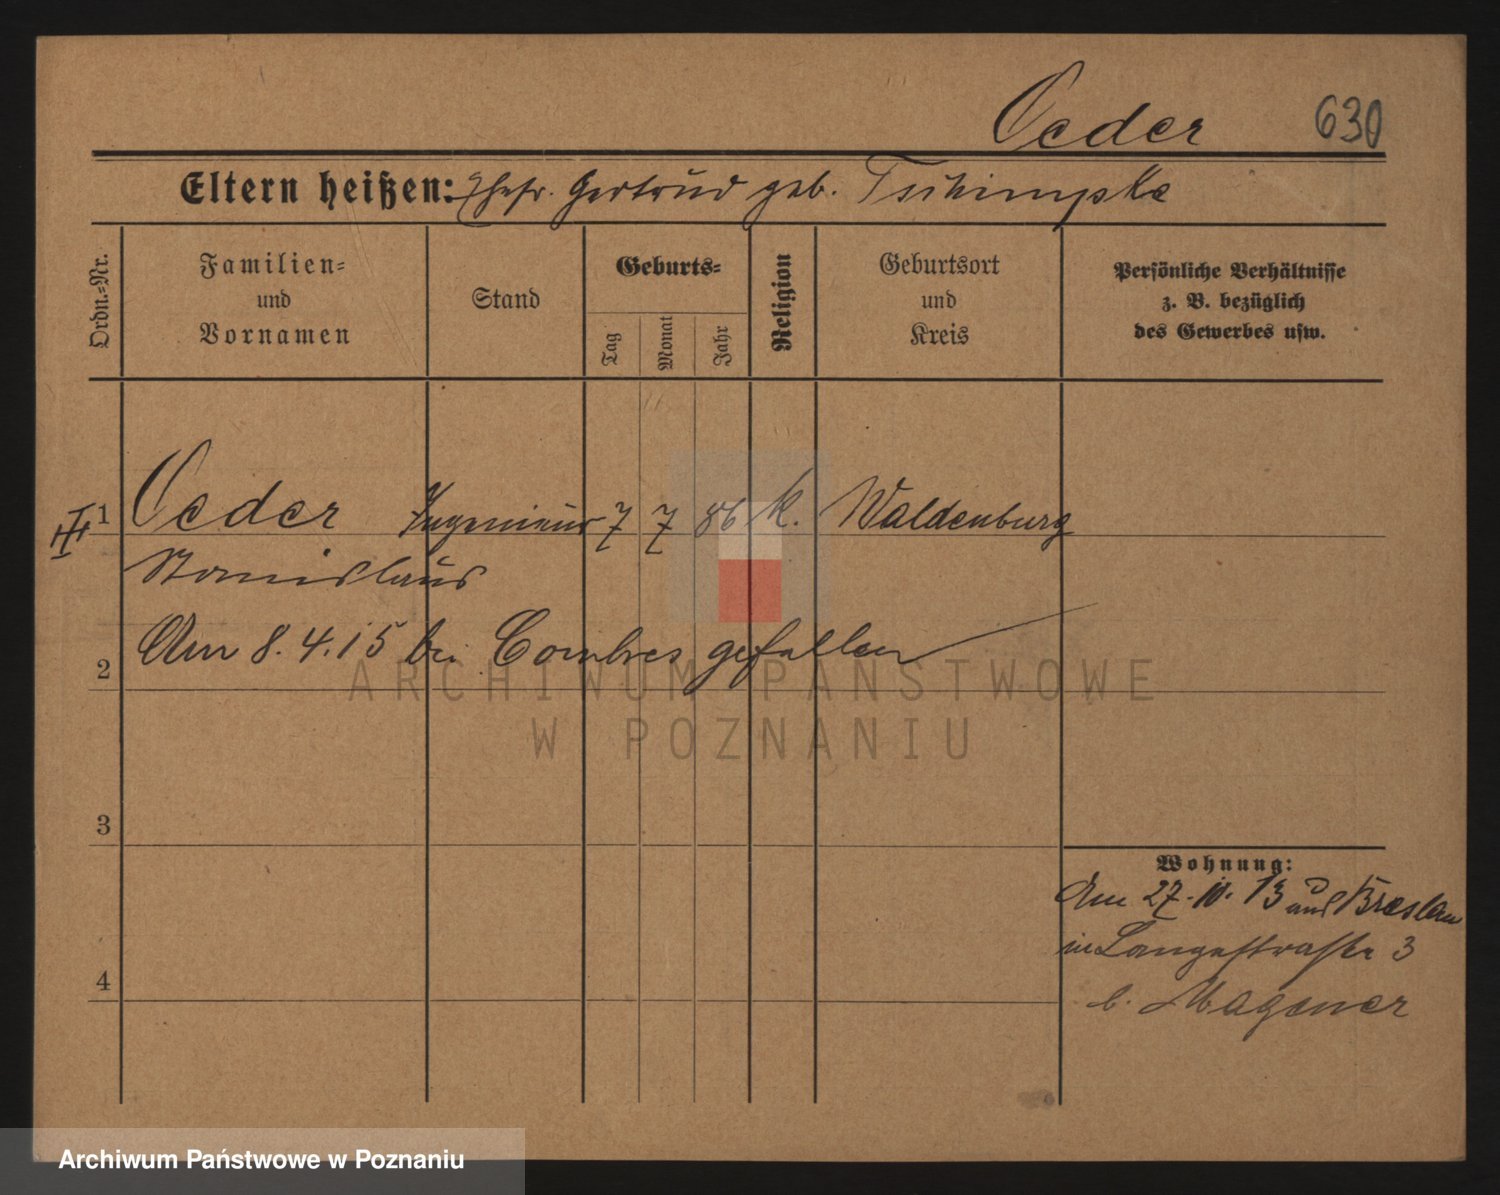 Oeder 630
Eltern heißen: Ehefr. Gertrud geb. Tschimpke
Ordn.-Nr.
Familien-
und
Vornamen
Stand
Geburts-
Tag
Monat
Jahr
Religion
Geburtsort
und
Kreis
Persönliche Verhältnisse
z. B. bezüglich
des Gewerbes usw.
III 1 Oeder Ingenieur 7 7 86 k. Waldenburg
Stanislaus
2 Am 8.4.15 bei Combres gefallen
ARCHIWUM PAŃSTWOWE
W POZNANIU
3
Wohnung:
Am 27.10.13 aus Breslau
in Langestraße 3
4 b. Wagener
Archiwum Państwowe w Poznaniu